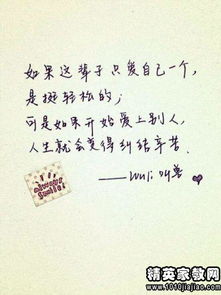 如果这辈子只爱自己一个,
是挺轻松的;
可是如果开始爱上别人,
人生就会变得纠结辛苦.
——wuli叫兽
always
smile!
精英家教网
www.1010jiajiao.com